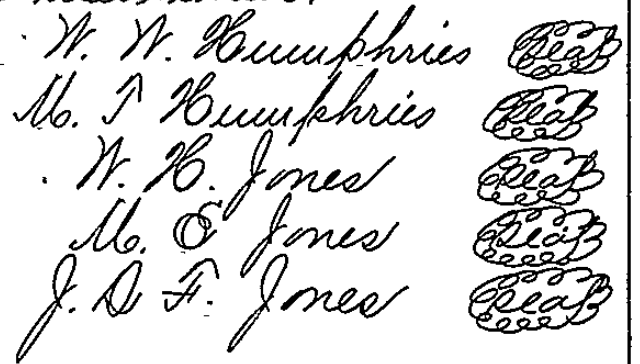 W. W. Humphries Seal
M. T Humphries Seal
W. H. Jones Seal
M. E Jones Seal
J. D F. Jones Seal